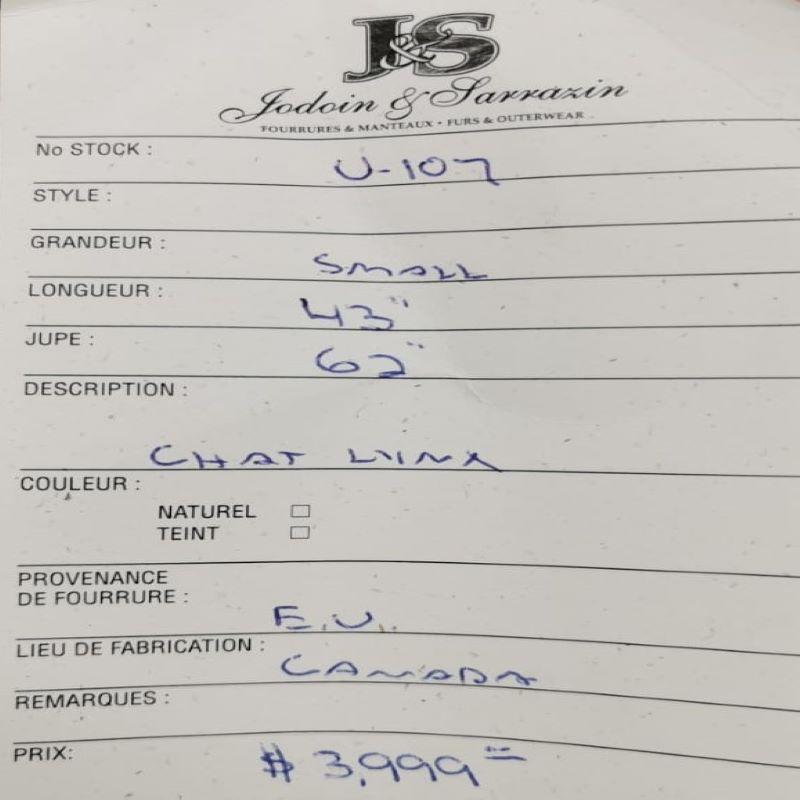 J&S
Jodoin & Sarrazin
FOURRURES & MANTEAUX • FURS & OUTERWEAR
No STOCK : U-107
STYLE :
GRANDEUR : SMALL
LONGUEUR : 43"
JUPE : 62"
DESCRIPTION :
CHAT LYNX
COULEUR :
NATUREL
TEINT
PROVENANCE
DE FOURRURE : E.U.
LIEU DE FABRICATION : CANADA
REMARQUES :
PRIX: $ 3,999